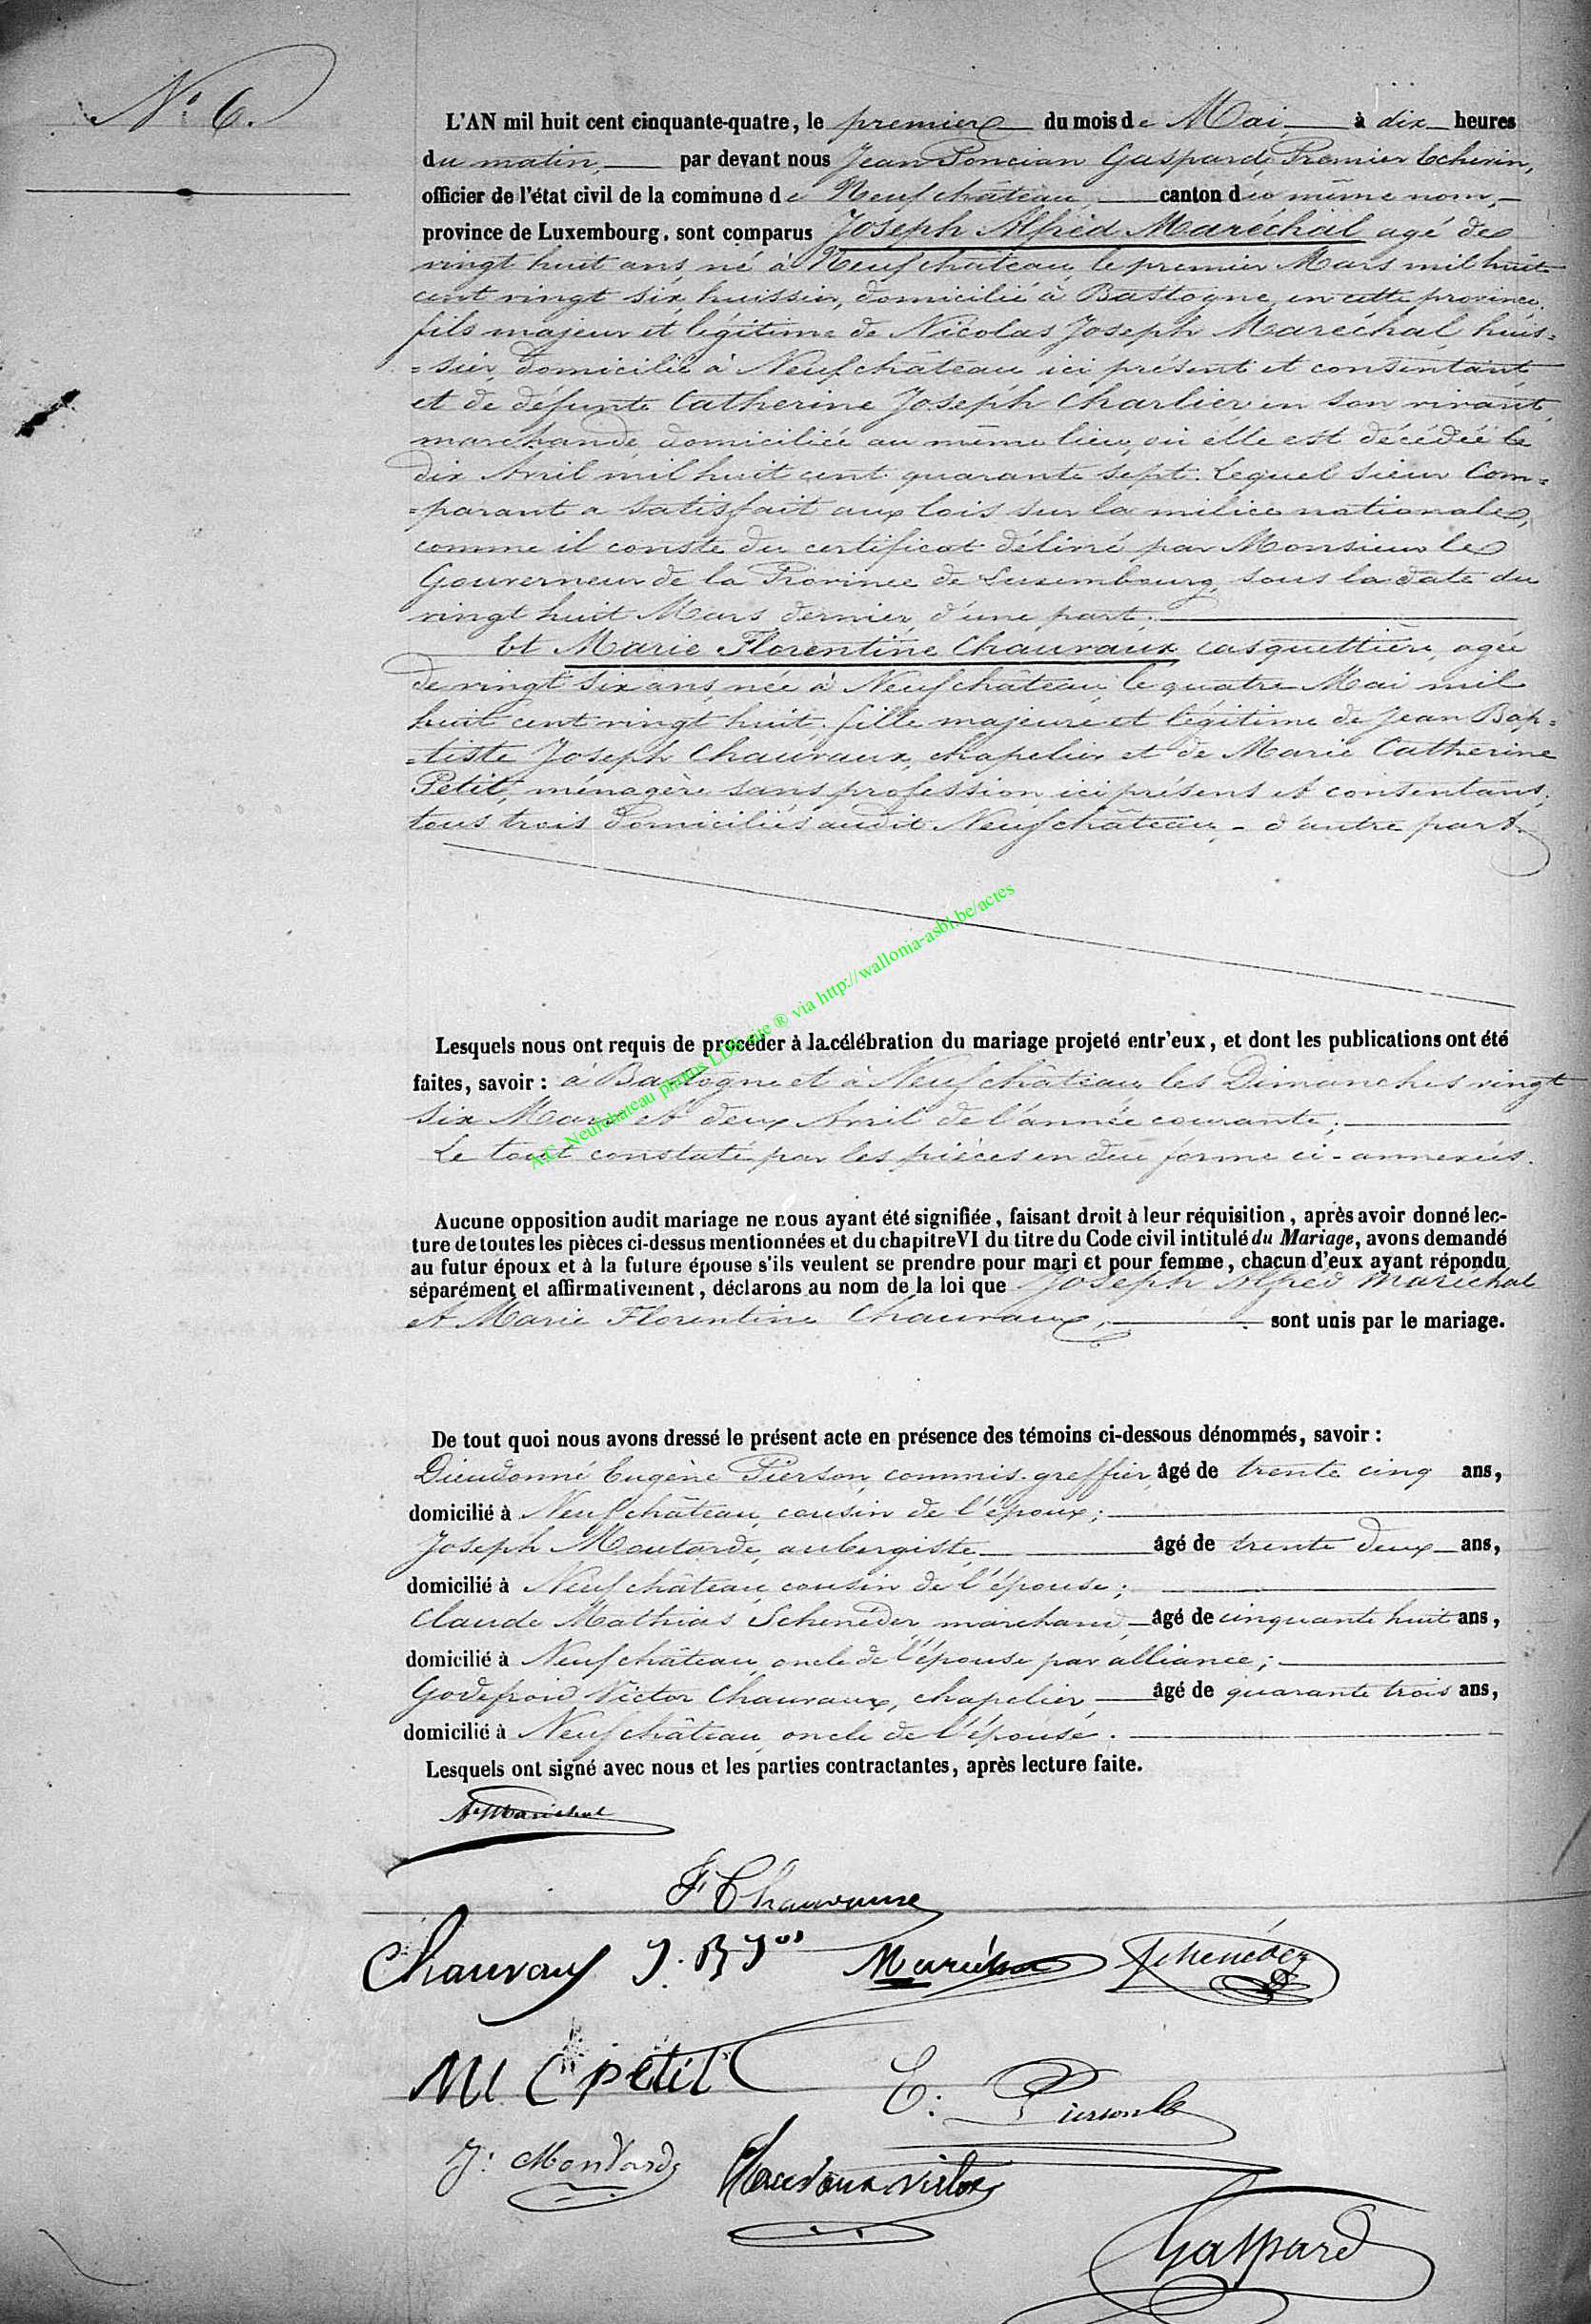 N° 6.
L'AN mil huit cent cinquante-quatre, le premier du mois de Mai à dix heures
du matin, par devant nous Jean Poncian Gaspard, Premier Echevin,
officier de l'état civil de la commune de Neufchâteau, canton du même nom,
province de Luxembourg, sont comparus Joseph Alfred Maréchal agé de
vingt huit ans, né à Neufchâteau, le premier Mars mil huit
cent vingt six, huissier, domicilié à Bastogne, en cette province,
fils majeur et légitime de Nicolas Joseph Maréchal, huis=
=sier, domicilié à Neufchâteau ici présent et consentant
et de défunte Catherine Joseph Charlier en son vivant
marchande, domiciliée au même lieu, où elle est décédée le
dix Avril mil huit cent quarante sept. Lequel sieur Com=
=parant a satisfait aux lois sur la milice nationale,
comme il conste du certificat délivré par Monsieur le
Gouverneur de la Province de Luxembourg, sous la date du
vingt huit Mars dernier, d'une part;
Et Marie Florentine Chauvaux casquettière, agée
de vingt six ans, née à Neufchâteau, le quatre Mai mil
huit cent vingt huit, fille majeure et légitime de Jean Bap=
=tiste Joseph Chauvaux, chapelier et de Marie Catherine
Petit, ménagère sans profession, ici présens et consentans,
tous trois domiciliés audit Neufchâteau, - d'autre part.
A.C. Neufchateau photos LDS site ® via http://wallonia-asbl.be/actes
Lesquels nous ont requis de procéder à la célébration du mariage projeté entr'eux, et dont les publications ont été
faites, savoir : à Bastogne et à Neufchâteau, les Dimanches vingt
six Mars et deux Avril de l'année courante;
Le tout constaté par les pièces en due forme ci-annexées.
Aucune opposition audit mariage ne nous ayant été signifiée, faisant droit à leur réquisition, après avoir donné lec-
ture de toutes les pièces ci-dessus mentionnées et du chapitre VI du titre du Code civil intitulé du Mariage, avons demandé
au futur époux et à la future épouse s'ils veulent se prendre pour mari et pour femme, chacun d'eux ayant répondu
séparément et affirmativement, déclarons au nom de la loi que Joseph Alfred Maréchal
et Marie Florentine Chauvaux, sont unis par le mariage.
De tout quoi nous avons dressé le présent acte en présence des témoins ci-dessous dénommés, savoir :
Dieudonné Eugène Pierson, commis-greffier, âgé de trente cinq ans,
domicilié à Neufchâteau, cousin de l'époux;
Joseph Moutarde, aubergiste, âgé de trente deux ans,
domicilié à Neufchâteau, cousin de l'épouse;
Claude Mathias Schenéder, marchand, âgé de cinquante huit ans,
domicilié à Neufchâteau, oncle de l'épouse par alliance;
Godefroid Victor Chauvaux, chapelier, âgé de quarante trois ans,
domicilié à Neufchâteau, oncle de l'épouse.
Lesquels ont signé avec nous et les parties contractantes, après lecture faite.
A. Maréchal
F. Chauvaux
Chauvaux J. B. Jos Maréchal Schenéder
M C petit E. Pierson
J. Moutarde Chauvaux victor
Gaspard